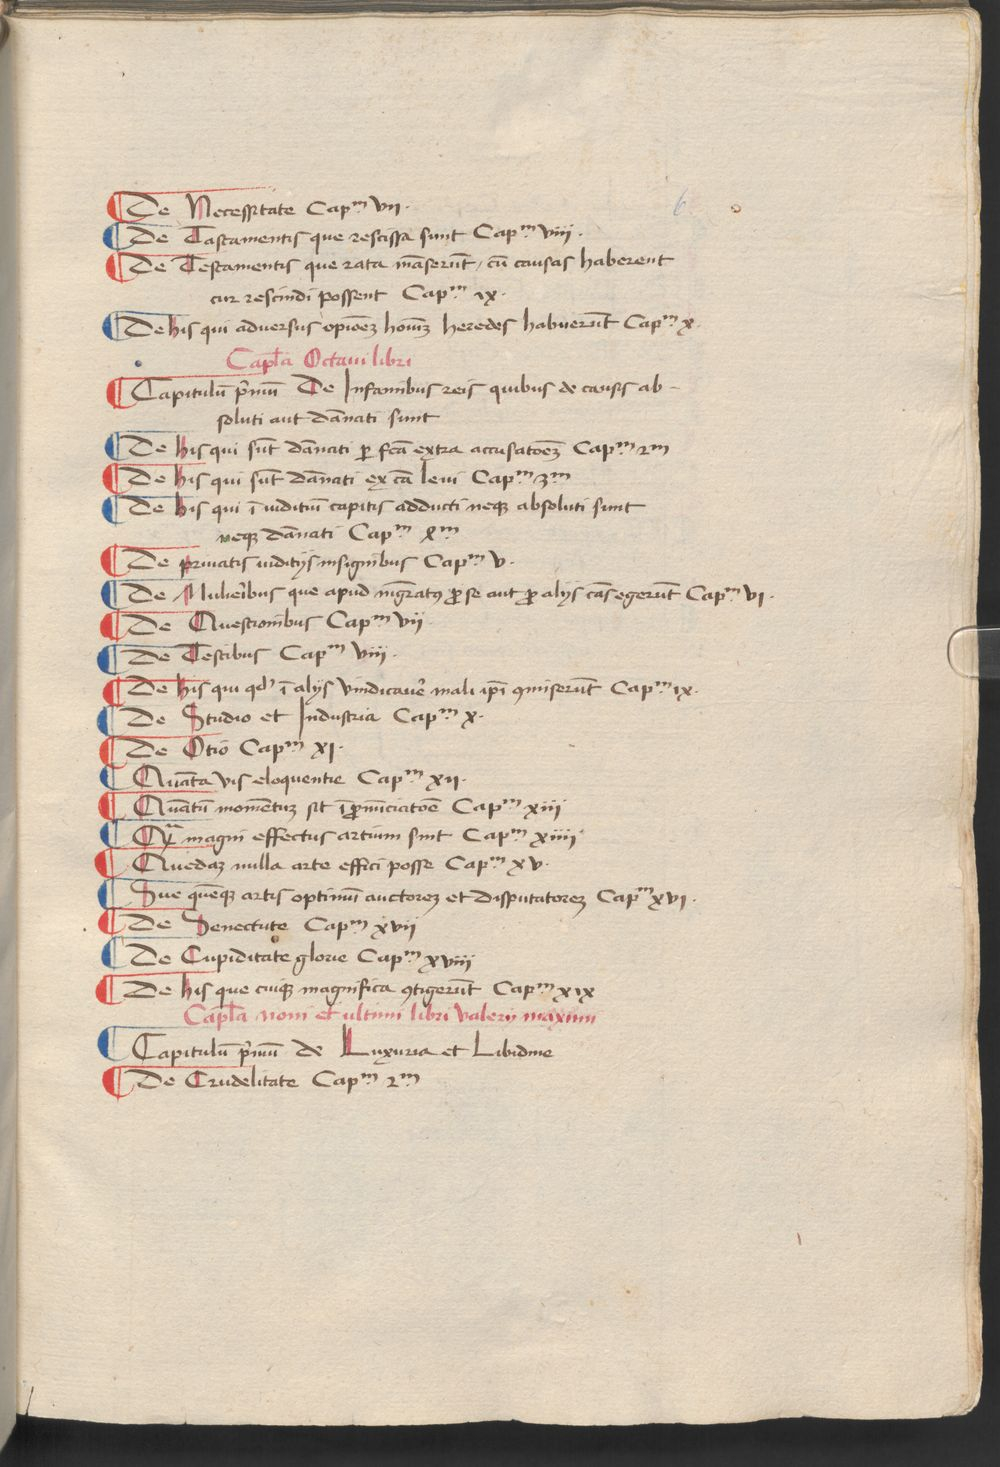 6
De Necessitate Capᵐ vıı.
De Tastamentis que rescissa sunt Capᵐ viii.
De Testamentis que rata māserūt, cū causas haberent
cur rescindi possent Capᵐ ıx.
De his qui adversus opiōez hoım̄z heredes habuerūt Capᵐ x.
Capl̄a Octaui libri
Capitulū p̄mū De Infamibus reis quibus de causis ab-
soluti aut dānati sunt
De his qui sūt dānati ꝑ fcā extra accusatōez Capᵐ 2ᵐ
De his qui sūt dānati ex cā leui Capᵐ 3ᵐ
De his qui ī iuditiū capitis adducti neqꝫ absoluti sunt
neqꝫ dānati Capᵐ 4ᵐ
De priuatis iuditijs insignibus Capᵐ v.
De Mulieribus que apud mḡratꝰ ꝓ se aut ꝓ alijs cās egerūt Capᵐ vı.
De Questionibus Capᵐ vii
De Testibus Capᵐ viii.
De his qui qd' ī alijs vindicaue᷑ mali ip̄i ꝯmiserūt Capᵐ ıx.
De Studio et Industria Capᵐ x.
De Otio Capᵐ xı.
Quāta vis eloquentie Capᵐ xıı.
Quātū momētuz sit ī ꝓnūciatōe Capᵐ xiii
Qᵃꝫ magni effectus artium sint Capᵐ xiiii
Quedaz nulla arte effici posse Capᵐ xv.
Sue quēqꝫ artis optimū auctorez et disputatorez Capᵐ xvı.
De Senectute Capᵐ xvii
De Cupiditate glorie Capᵐ xviii
De his que cuiqꝫ magnifica ꝯtigerūt Capᵐ xıx
Capl̄a noni et ultimi libri valerij maximi
Capitulū p̄mū de Luxuria et Libidine
De Crudelitate Capᵐ 2ᵐ